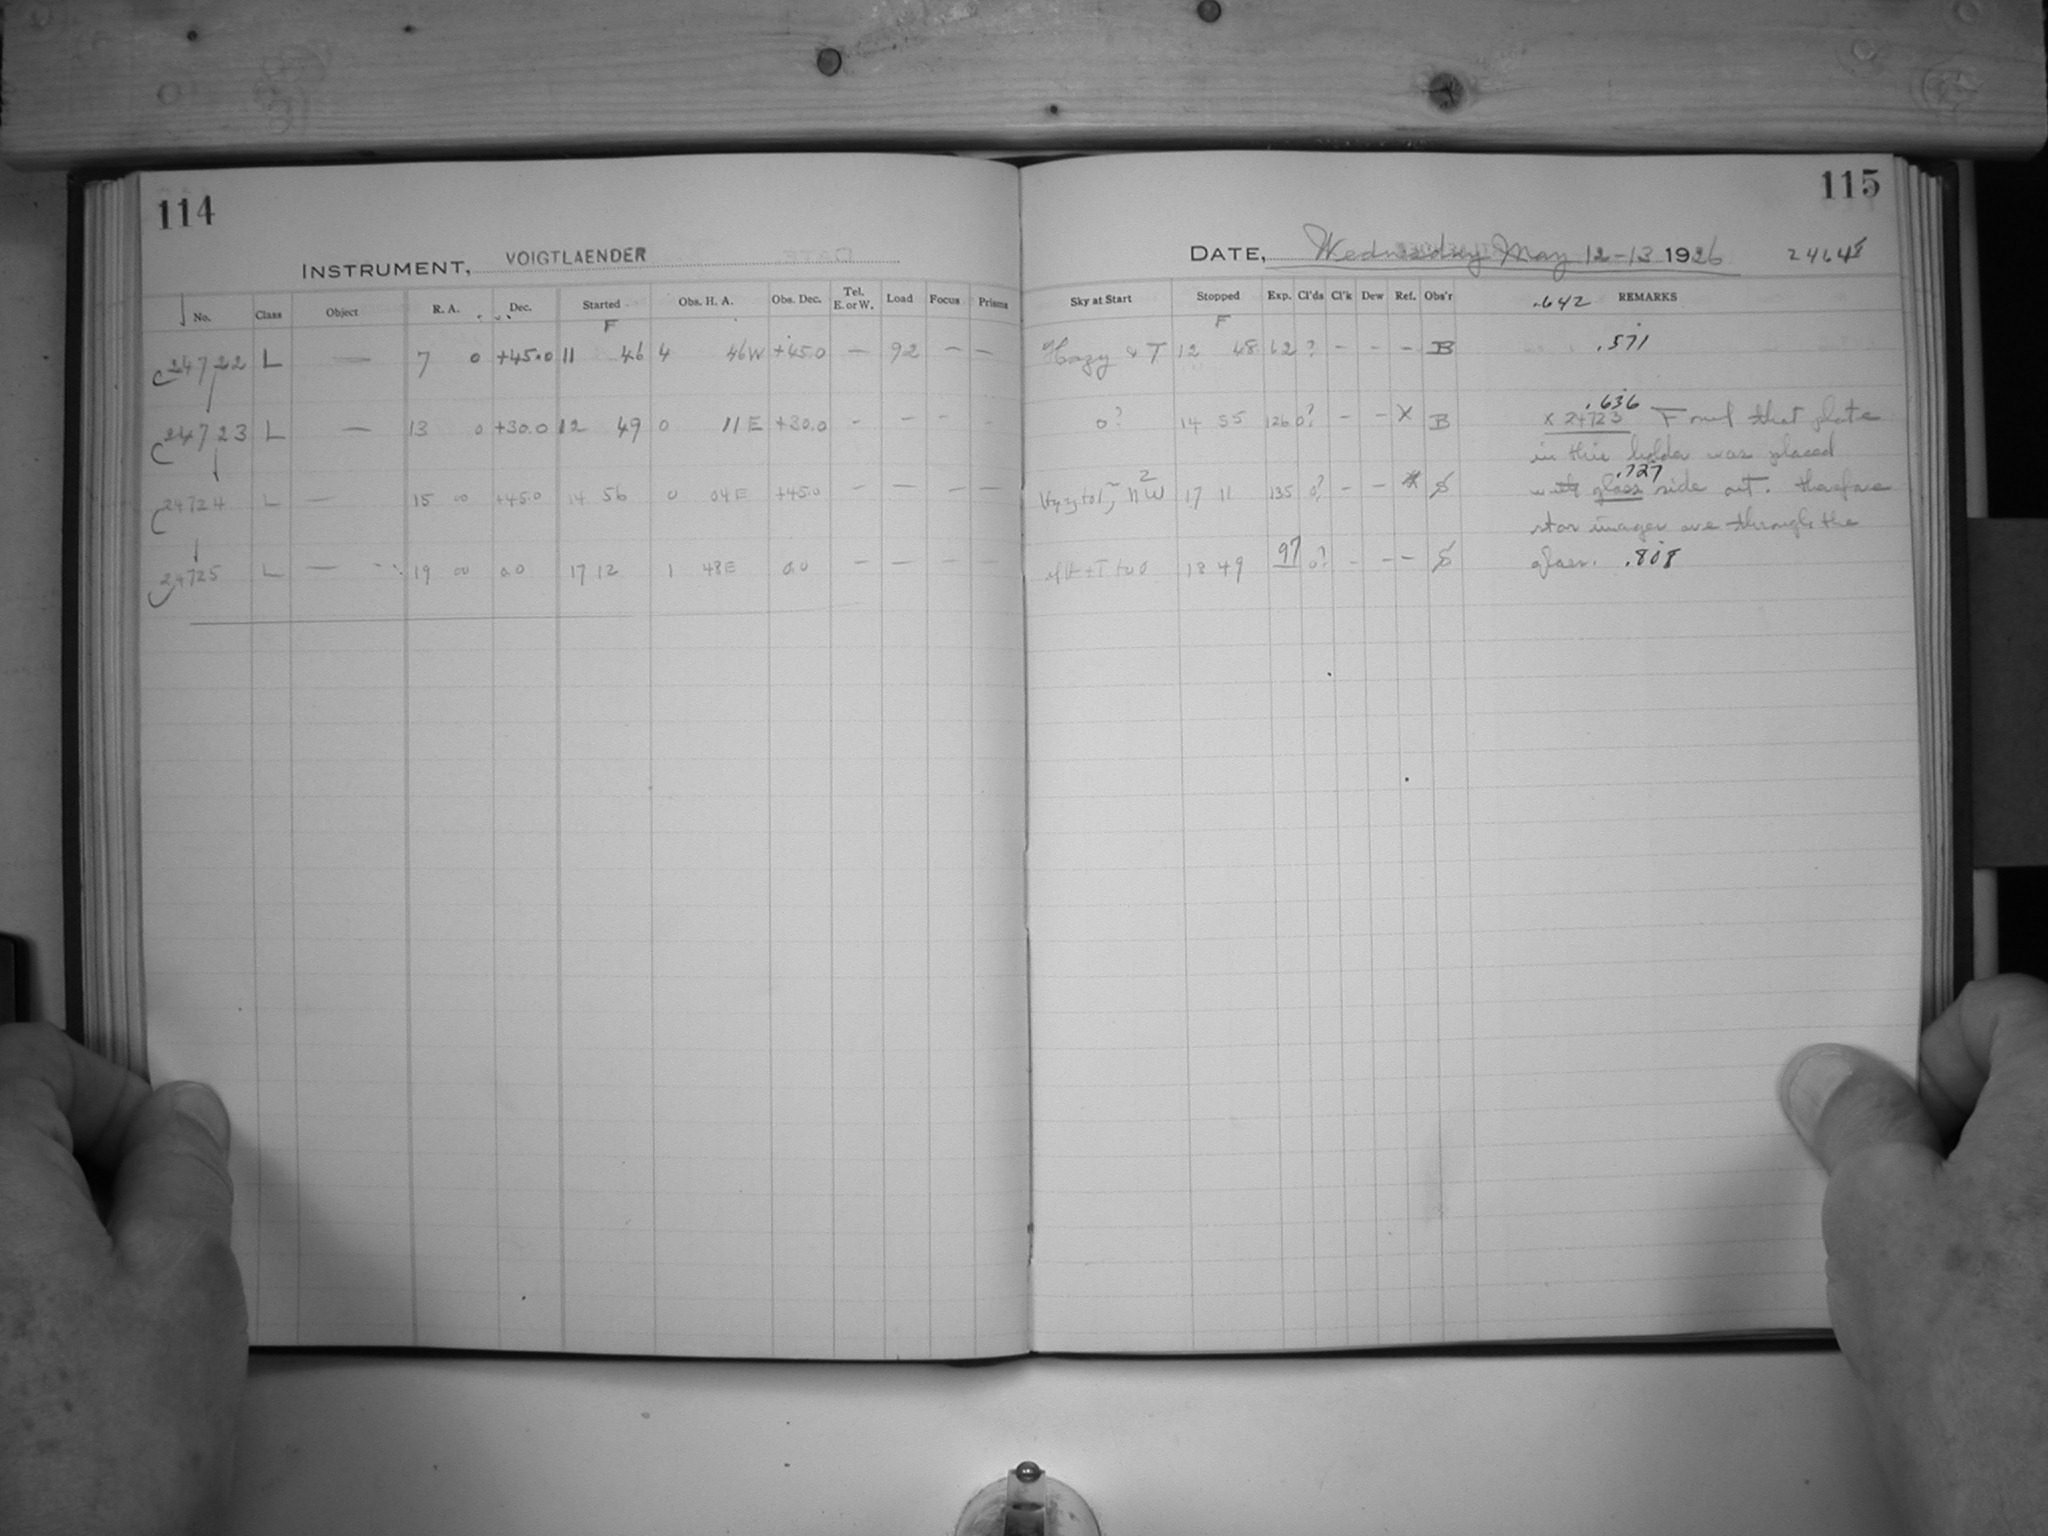 114
INSTRUMENT, VOIGTLAENDER
No. Class Object R. A. Dec. Started Obs. H. A. Obs. Dec. Tel. E. or W. Load Focus Prisms
F
24722 L — 7 0 +45.0 11 46 4 46W +45.0 — 92 — —
24723 L — 13 0 +30.0 12 49 0 11E +30.0 - — - -
24724 L — 15 00 +45.0 14 56 0 04E +45.0 - — - —
24725 L — 19 00 0.0 17 12 1 48E 0.0 — — — —
115
DATE, Wednesday May 12-13 1926 24648
Sky at Start Stopped Exp. Cl'ds Cl'k Dew Ref. Obs'r .642 REMARKS
F
Hazy & T 12 48 62 ? - - - B .571
.636
0? 14 55 126 0? - - X B X 24723 Found that plate
in this holder was placed
.727
17 11 135 0? - - with glass side out. therefore
star images are through the
18 49 97 0? - - - glass. .808